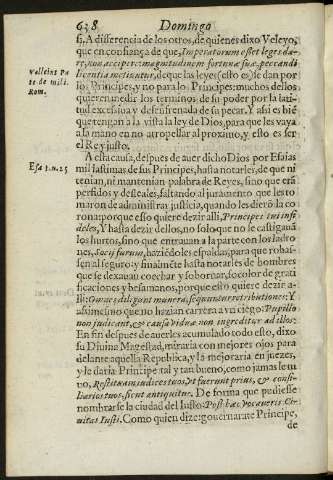 638 Domingo
si. A differencia de los otros, de quienes dixo Veleyo,
que en confiança de que, Imperatorum esset leges da-
re, non accipere: magnitudinem fortunæ suæ, peccandi
licentia metiuntur, de que las leyes (esto es) se dan por
los Principes, y no para los Principes: muchos dellos
quieren medir los terminos de su poder por la lati-
tud excessiua y desenfrenada de su pecar. Y assi es biē
que tengan a la vista la ley de Dios, para que les vaya
a la mano en no atropellar al proximo, y esto es ser
el Rey justo.
Velleius Pa
te de mili.
Rom.
A esta causa, despues de auer dicho Dios por Esaias
mil lastimas de sus Principes, hasta notarles, de que ni
tenian, ni mantenian palabra de Reyes, sino que erā
perfidos y desleales, faltando al juramento que les to
maron de administrar justicia, quando les dierō la co
rona: porque esso quiere dezir alli, Principes tui infi
deles, Y hasta dezir dellos, no solo que no se castigauā
los hurtos, sino que entrauan a la parte con los ladro
nes, Socij furum, haziēdoles espaldas, para que robas-
sen al seguro: y finalmēte hasta notarles de hombres
que se dexauan cohechar y sobornar, so color de grati
ficaciones y besamanos, porque esto quiere dezir a-
lli: Omnes diligunt munera, sequuntur retributiones: Y
assimesmo que no hazian carrera a vn ciego: Pupillo
non iudicant, & causa viduæ non ingreditur ad illos:
En fin despues de auerles acumulado todo esto, dixo
su Diuina Magestad, miraria con mejores ojos para
delante aquella Republica, y la mejoraria en juezes,
y le daria Principe tal y tan bueno, como jamas le tu
uo, Restituam iudices tuos, vt fuerunt prius, & consi-
liarios tuos, sicut antiquitus. De forma que pudiesse
nombrarse la ciudad del Iusto. Post hæc vocaueris Ci-
uitas Iusti. Como quien dize: gouernarate Principe,
de
Esa 1.n.25